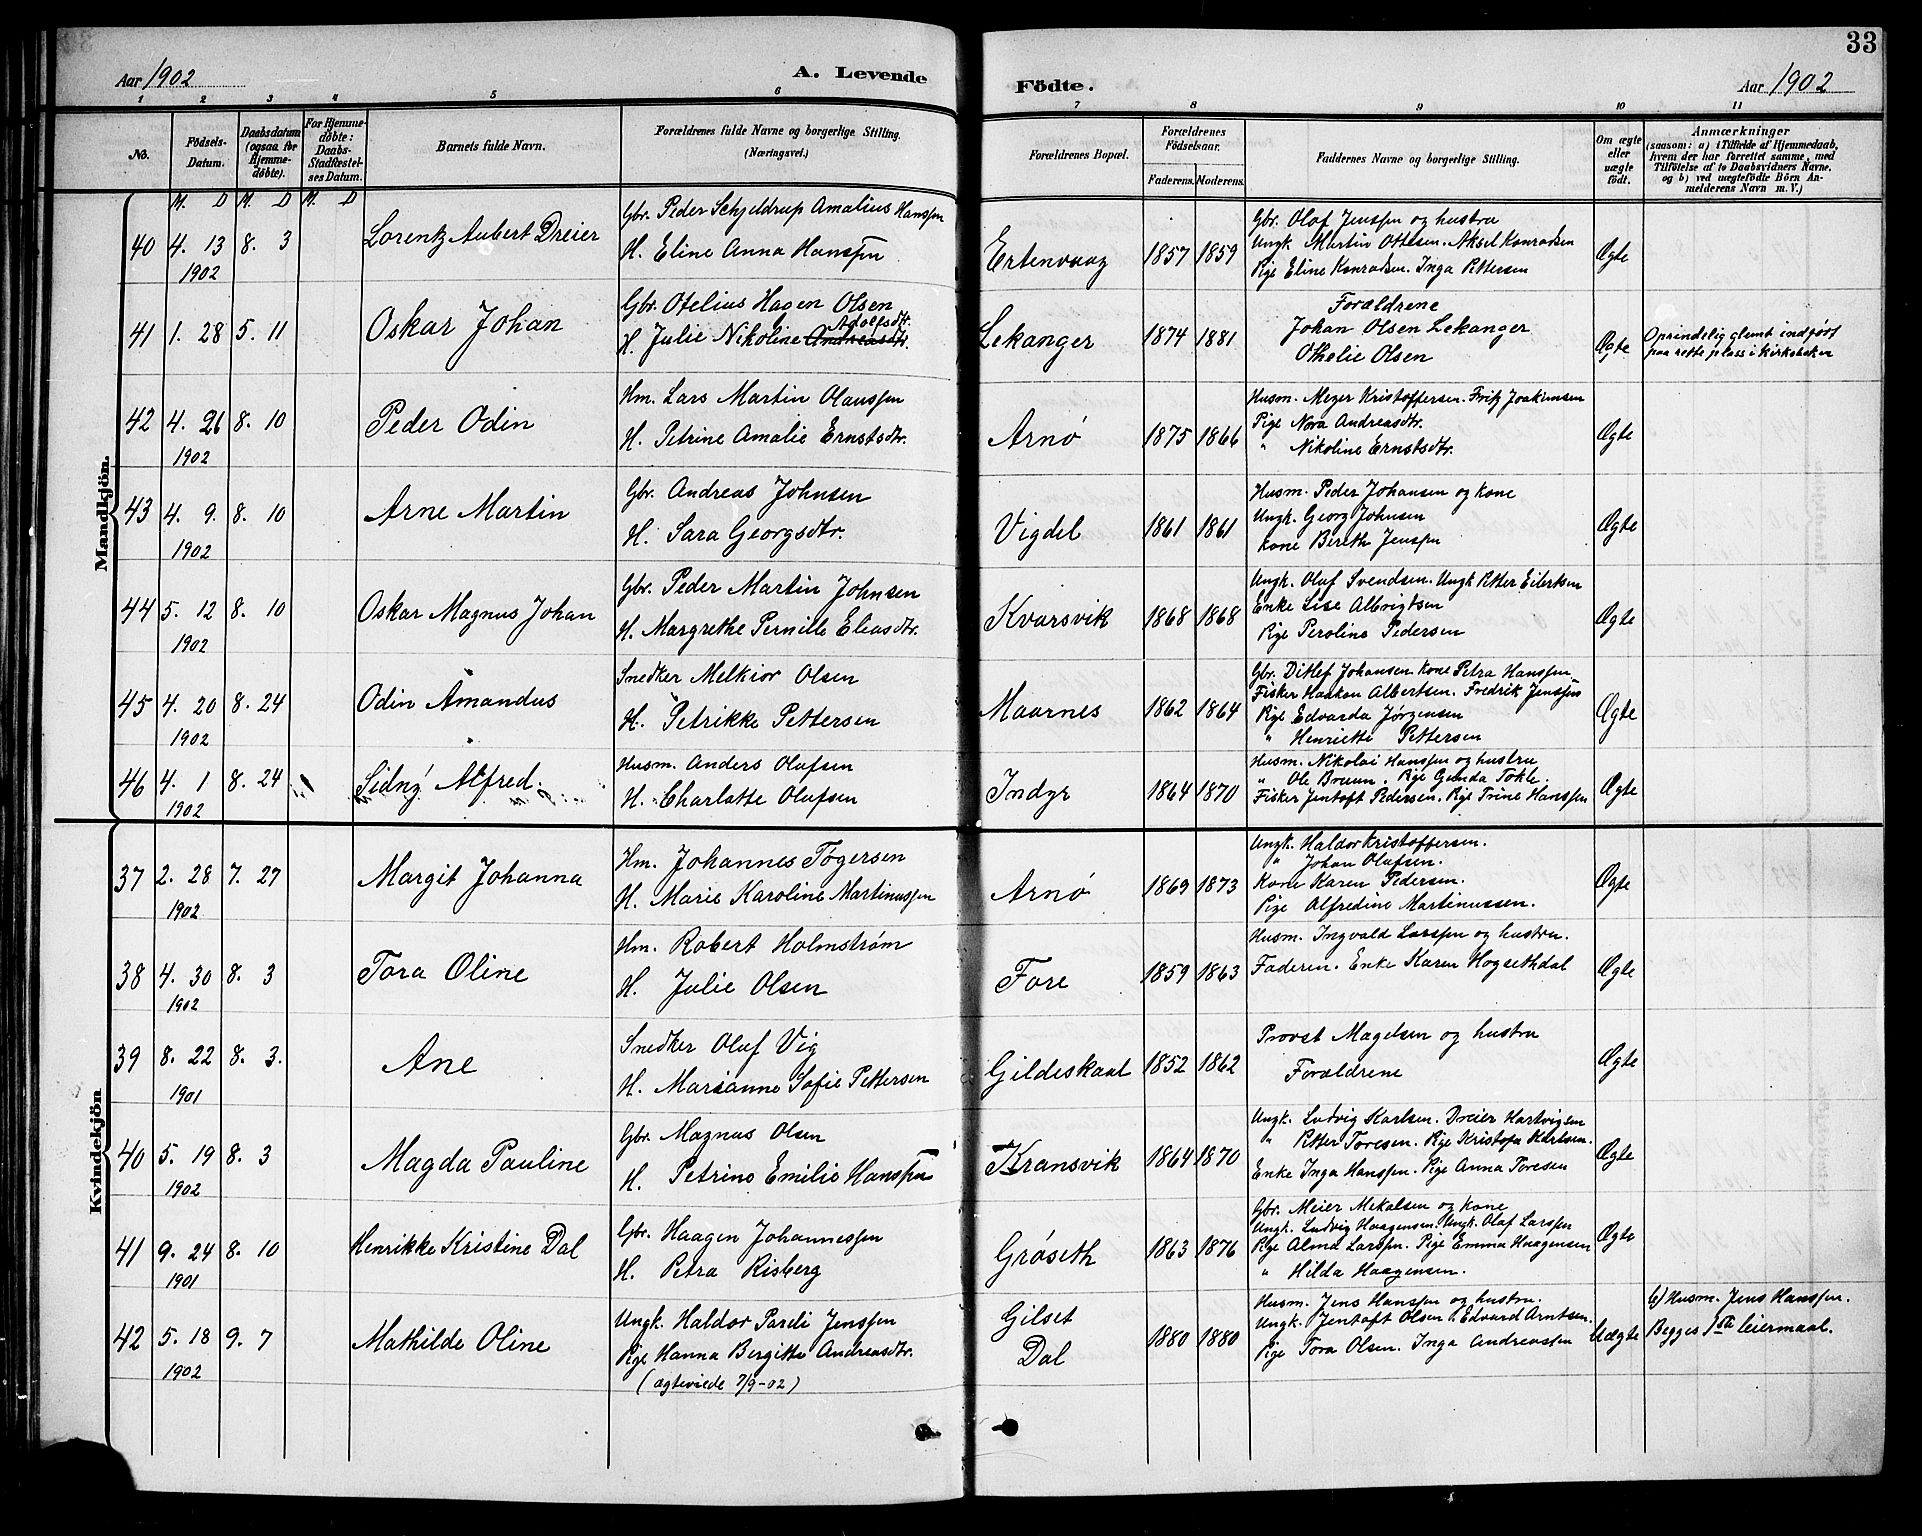 33
Aar 1902
A. Levende
Födte.
Aar 1902
1 2 3 4 5 6 7 8 9 10 11
No.
Födsels-
Datum.
Daabsdatum
(ogsaa for
Hjemme-
døbte).
For Hjemme-
døbte:
Daabs-
Stadfæstel-
ses Datum.
Barnets fulde Navn.
Forældrenes fulde Navne og borgerlige Stilling.
(Næringsvei.)
Forældrenes Bopæl.
Forældrenes
Födselsaar.
Faderens. Moderens.
Faddernes Navne og borgerlige Stilling.
Om ægte
eller
uægte
födt.
Anmærkninger
(saasom: a) i Tilfælde af Hjemmedaab,
hvem der har forrettet samme, med
Tilföielse af to Daabsvidners Navne,
og b) ved uægtefödte Börn An-
melderens Navn m. V.)
M. D M. D M. D
Mandkjön.
40 4. 13 8. 3
1902
Lorentz Aubert Dreier
Gbr. Peder Schjeldrup Amalius Hanssen
H. Eline Anna Hanssen
Ertenvaag
1857 1859
Gbr. Olaf Jenssen og hustru
Ungk. Martin Ottesen. Aksel Konradsen
Pige Eline Konradsen. Inga Pettersen
Ægte
41 1. 28 5. 11
Oskar Johan
Gbr. Otelius Hagen Olsen
Adolfsdtr.
H. Julie Nikoline Andreasdtr.
Lekanger
1874 1881
Forældrene
Johan Olsen Lekanger
Othelie Olsen
Ægte
Oprindelig glemt indført
paa rette plass i kirkeboken
42 4. 26 8. 10
1902
Peder Odin
Hm. Lars Martin Olaussen
H. Petrine Amalie Ernstsdtr.
Arnø
1875 1866
Husm. Meyer Kristoffersen. Fritz Joakimsen
Pige Nora Andreasdtr.
" Nikoline Ernstsdtr.
Ægte
43 4. 9. 8. 10
1902
Arne Martin
Gbr. Andreas Johnsen
H. Sara Georgsdtr.
Vigdel
1861 1861
Husm. Peder Johansen og kone
Ungk. Georg Johnsen
Kone Bereth Jenssen
Ægte
44 5. 12 8. 10
1902
Oskar Magnus Johan
Gbr. Peder Martin Johnsen
H. Margrethe Pernille Eliasdtr.
Kvarsvik
1868 1868
Ungk. Olaf Svendsen. Ungk Petter Eilertsen
Enke Lise Albrigtsen
Pige Peroline Pedersen
Ægte
45 4. 20 8. 24
1902
Odin Amandus
Snedker Melkior Olsen
H. Petrikke Pettersen
Maarnes
1862 1864
Gbr. Ditlef Johansen. Kone Petra Hanssen
Fisker Haakon Albertsen. Fredrik Jenssen
Pige Edvarda Jørgensen
" Henriette Pettersen
Ægte
46 4. 1 8. 24
1902
Sidny Alfred.
Husm. Anders Olafsen
H. Charlotte Olafsen
Indyr
1864 1870
Husm. Nikolai Hanssen og hustru
" Ole Bruun. Pige Gunda Tokle.
Fisker Jentoft Pedersen. Pige Trine Hanssen
Ægte
Kvindekjön
37 2. 28 7. 27
1902
Margit Johanna
Hm. Johannes Tøgersen
H. Marie Karoline Martinussen
Arnø
1869 1873
Ungk. Haldor Kristoffersen.
" Johan Olafsen.
Kone Karen Pedersen.
Pige Alfredine Martinussen.
Ægte
38 4. 30 8. 3
1902
Tora Oline
Hm. Robert Holmstrøm
H. Julie Olsen
Fore
1859 1863
Husm. Ingvald Larssen og hustru.
Faderen. Enke Karen Hogsethdal
Ægte
39 8. 22 8. 3.
1901
Ane
Snedker Olaf Vig
H. Marianne Sofie Pettersen
Gildeskaal
1852 1862
Provst Magelsen og hustru
Forældrene
Ægte
40 5. 19 8. 3
1902
Magda Pauline
Gbr. Magnus Olsen
H. Petrine Emilie Hanssen
Kransvik
1864 1870
Ungk. Ludvig Karlsen. Dreier Hartvigsen
" Petter Toresen. Pige Kristofa Karlsen.
Enke Inga Hanssen. Pige Anna Toresen
Ægte
41 9. 24 8. 10
1901
Henrikke Kristine Dal
Gbr. Haagen Johannessen
H. Petra Risberg
Grøseth
1863 1876
Gbr. Meier Mekalsen og Kone
Ungk. Ludvig Haagensen. Ungk. Olaf Larssen
Pige Alma Larssen. Pige Emma Haagensen
" Hilda Haagensen.
Ægte
42 5. 18 9. 7
1902
Mathilde Oline
Ungk. Haldor Pareli Jenssen
Pige Hanna Bergitte Andreasdtr.
(ægteviede 7/9-02)
Gilset
Dal
1880 1880
Husm. Jens Hanssen og hustru.
Ungk. Jentoft Olsen. Edvard Arntsen.
Pige Tora Olsen. Inga Andreassen
Uægte
b) Husm. Jens Hanssen.
Begges 1ste leiermaal.